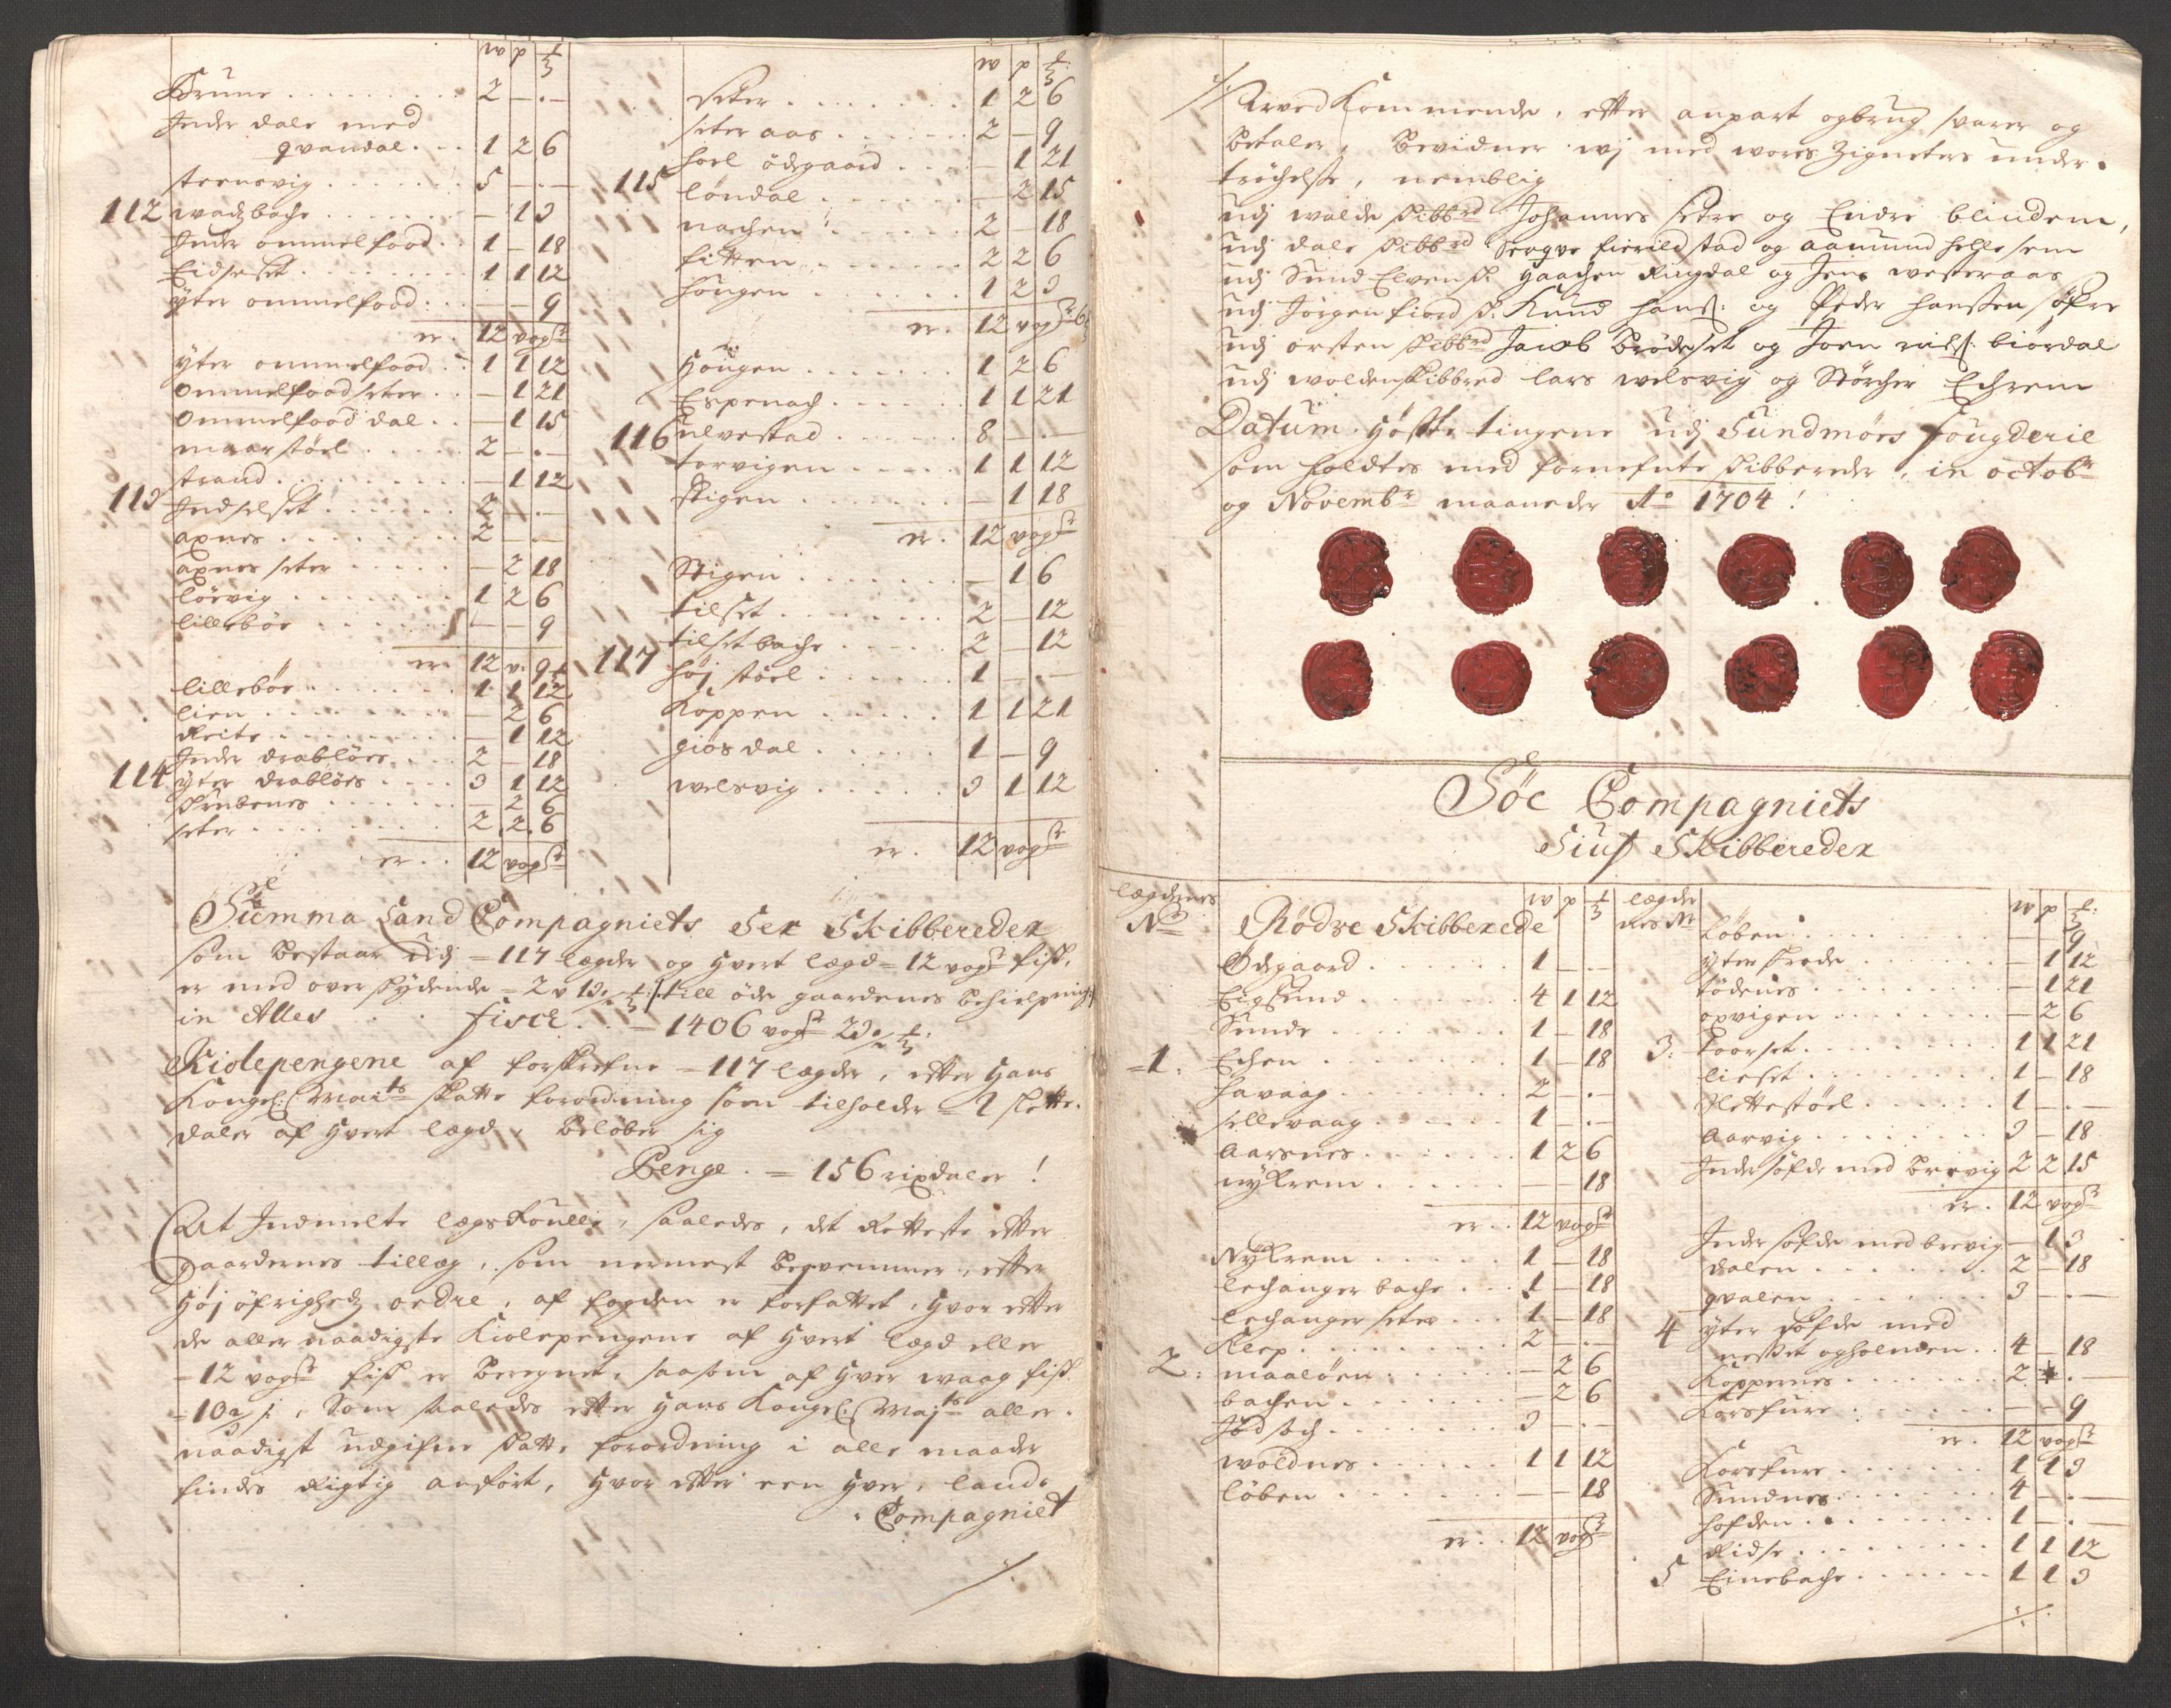 w p ℔
Brune . . . 2 – . –
Inder dale med
qvandal . . 1 2 6
steensvig . . . 5 – . –
112 wadzbache . . . – 1 3
Inder ommelfood . . 1 – 18
Eidseset . . . 1 1 12
ÿter ommelfood . . – – 9
er . 12 vogr
ÿter ommelfood . . 1 1 12
ommelfoodseter . . – 1 21
ommelfood dal . . – 1 15
maarstöel . . . 2 – . –
strand . . . – 1 12
113 Indselset . . . 2 – . –
axnes . . . 2 – . –
axnes seter . . . – 2 18
lörvig . . . 1 2 6
lilleböe . . . – – 9
er . 12 v. 9 ℔
lilleböe . . . 1 1 12
lien . . . – 2 6
Reite . . . – 1 12
Inder drablöes . . 2 – 18
114 ÿter drablöes . . . 3 1 12
skinbenes . . . – 2 6
seter . . . 2 2 6
er . . 12 vogr
w p ℔
seter . . . 1 2 6
seteraas . . . 2 – 9
hoel ödegaard . . – 1 21
115 löndal . . . – 2 15
nachen . . . 2 – 18
fitten . . . 2 2 6
höugen . . . 1 2 3
er . 12 vogr 6
Höugen . . . 1 2 6
Espenach . . . 1 1 21
116 ulvestad . . . 8 – . –
torvigen . . . 1 1 12
stigen . . . – 1 18
er . 12 vogr
Stigen . . . – 1 6
tilset . . . 2 – 12
tilsetbache . . . 2 – 12
117 höj stöel . . . 1 – . –
Koppen . . . 1 1 21
giösdal . . . 1 – 9
welsvig . . . 3 1 12
er . 12 vogr
Summa Land Compagniets Sex Skibbereder
som bestaar udj = 117 lægder og hvert lægd = 12 vogr fisk,
er med overskydende = 2 v 13 ℔ till öde gaardenes behielpning
in Alles . . fisck . . – 1406 vogr 23 ℔ .
Kiolepengene af forskrefne = 117 lægder, efter Hans
Kongel: Maits skatte forordning som tilholder = 2 slette
daler af hvert lægd, belöber sig
Penge . = 156 rixdaler !
At Indmelte lægs Roulle, saaledes, det Retteste efter
gaardernes tillæg, som nermest beqvemmer, efter
Höj öfrighedz ordre, af fogden er forfattet, hvor efter
de aller naadigste Kiolepengene af hvert lægd eller
= 12 vogr fisk er beregnet, saasom af hver waag fisk
= 10 2/3 s, Som saaledes efter Hans Kongel: Majts aller-
naadigst udgifne skatte forordning i alle maader
findes Rigtig anfört, hvor efter een hver, land-
Compagniet
./.
./. Arved Kommende, efter anpart og brug svarer og
betaler, bevidner wj med wores Zigneter under-
tröchelse, nemblig
udj walde skibbrd Johannes setre og Endre blindem,
udj dale skibbrd Sergve fierildstad og aamund helgesem
udj Sund Elven sk. Haachen Ringdal og Jens westeraas
udj Jörgenfiord s. Knud hans: og Peder hanssen söfre
udj orsten skibbrd Jacob brödeset og Joen niels: biördal
udj woldenskibbred lars welsvig og Störcher Echrem
Datum Höste tingene udj Sundmörs fougderie
som holdtes med fornefnte skibbereder, in octobr
og Novembr maaneder Ao 1704 !
Söe Compagniets
Siuf Skibbereder
lægdernes Nr
Rödve Skibberede w p ℔
Ödegaard . . . 1 – . –
Eigsund . . . 4 1 12
Sunde . . . 1 – 18
=1. Echen . . . 1 – 18
havaag . . . 2 – . –
sellevaag . . . 1 – . –
Aarsnes . . . 1 2 6
nÿkrem . . . – – 18
er . . 12 vogr
Nÿkrem . . . 1 – 18
lechanger bache . . . 1 – 18
lechanger seter . . . 1 – 18
Klep . . . 2 – . –
2: maalöen . . . – 2 6
bachen . . . – 2 6
Jödsech . . . 3 – . –
woldnes . . . 1 1 12
löben . . . – – 18
er . . 12 vogr
lægder nes Nr w p ℔
Löben . . . – – 9
ÿter skrede . . . – 1 12
tödenes . . . – 1 21
opvigen . . . – 2 6
3: toorset . . . 1 1 21
lieset . . . 1 – 18
Slettestöel . . . 1 – . –
aarvig . . . 3 – 18
Inder söfde med brevig 2 2 15
er . 12 vogr
Inder söfde med brevig – 1 3
dalen . . . 2 – 18
qvalen . . . 3 – . –
4 ÿter söfde med
nesset og holmden . . 4 – 18
Koppernes . . . 2 . –
Korsfure . . . – – 9
er . 12 vogr
Korsfure . . . 1 1 3
Sundnes . . . 4 – . –
hofden . . . 1 – . –
Ridse . . . 1 1 12
5 Einebache . . . 1 1 3
./.